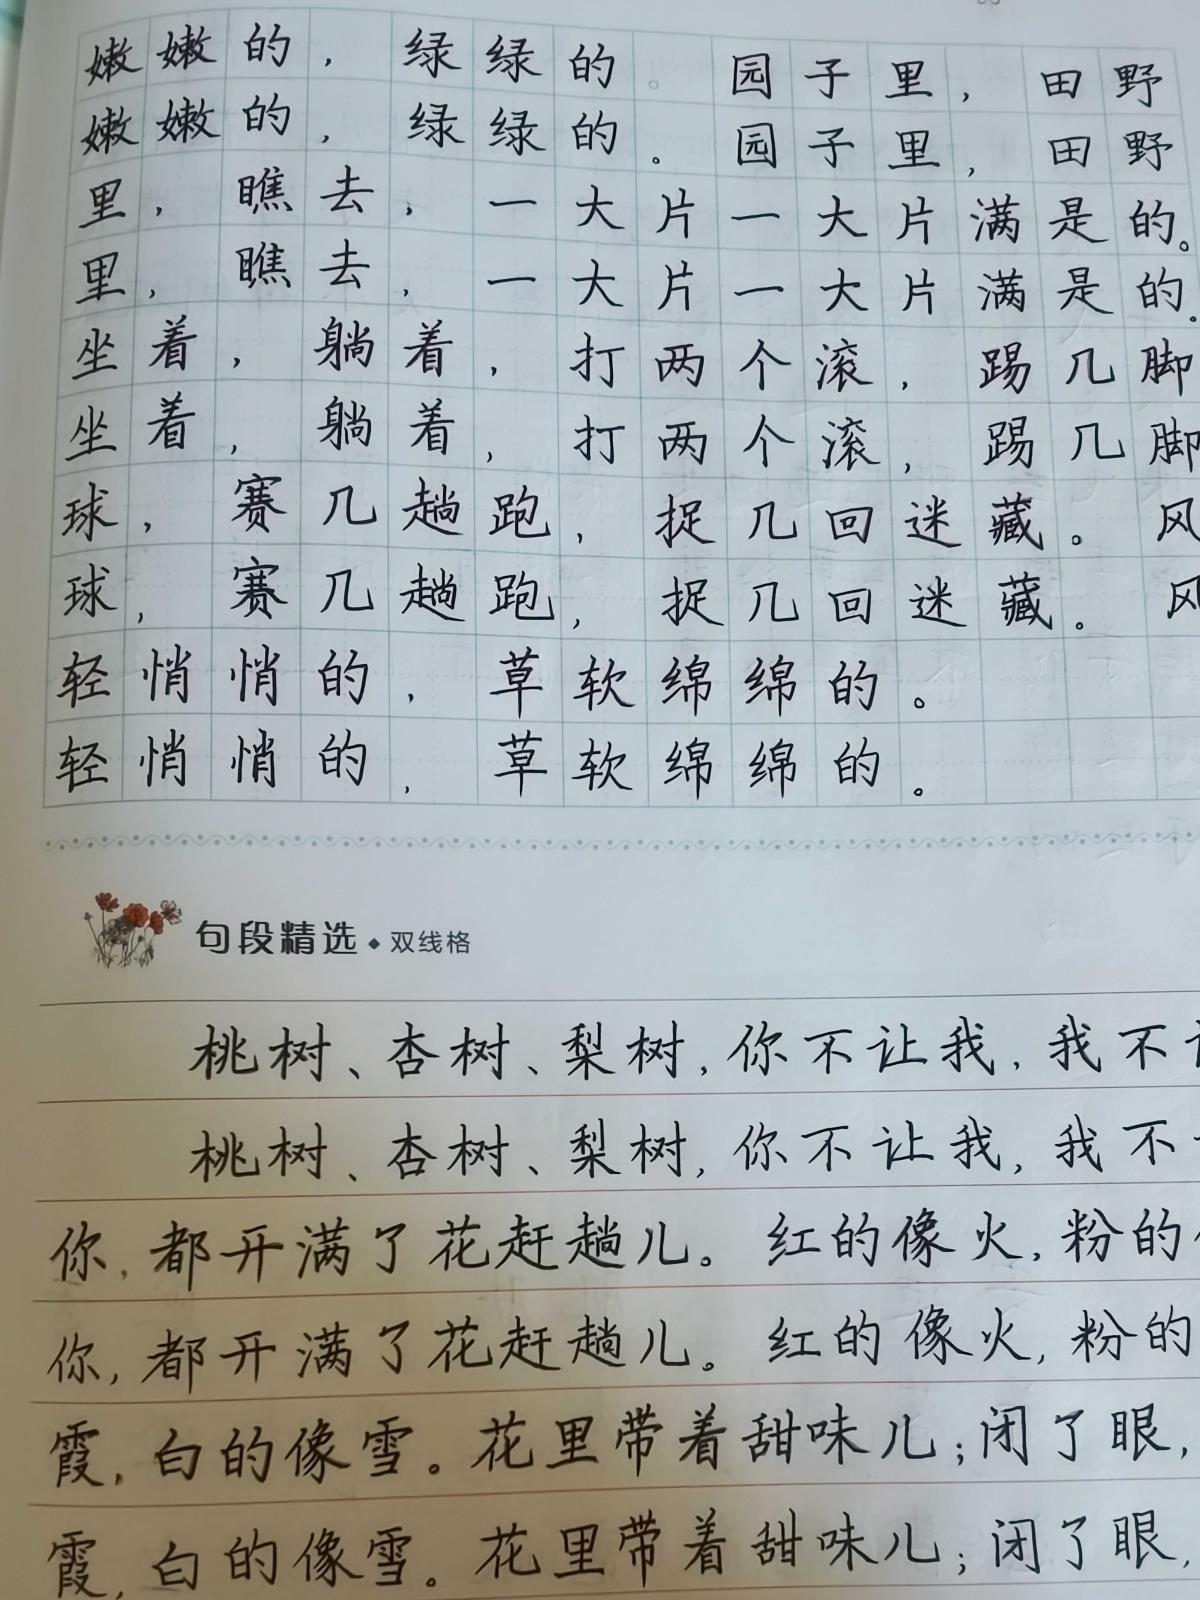 嫩嫩的，绿绿的。园子里，田野
嫩嫩的，绿绿的。园子里，田野
里，瞧去，一大片一大片满是的。
里，瞧去，一大片一大片满是的。
坐着，躺着，打两个滚，踢几脚
坐着，躺着，打两个滚，踢几脚
球，赛几趟跑，捉几回迷藏。风
球，赛几趟跑，捉几回迷藏。风
轻悄悄的，草软绵绵的。
轻悄悄的，草软绵绵的。
句段精选◆双线格
桃树、杏树、梨树，你不让我，我不
桃树、杏树、梨树，你不让我，我不
你，都开满了花赶趟儿。红的像火，粉的
你，都开满了花赶趟儿。红的像火，粉的
霞，白的像雪。花里带着甜味儿；闭了眼，
霞，白的像雪。花里带着甜味儿；闭了眼，